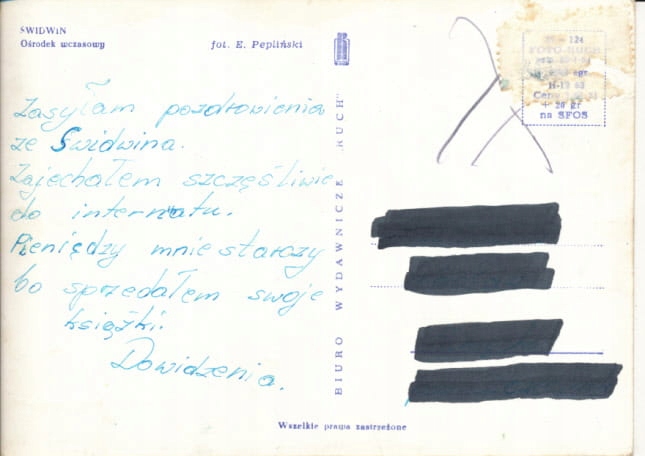 ŚWIDWIN
Ośrodek wczasowy
fot. E. Pepliński
Zasyłam pozdrowienia
ze Świdwina.
Zajechałem szczęśliwie
do internatu.
Pieniędzy mnie starczy
bo sprzedałem swoje
książki.
Dowidzenia.
BIURO WYDAWNICZE „RUCH”
124
FOTO-RUCH
egz.
H-12 63
Cena
+ 20 gr
na SFOS
Wszelkie prawa zastrzeżone